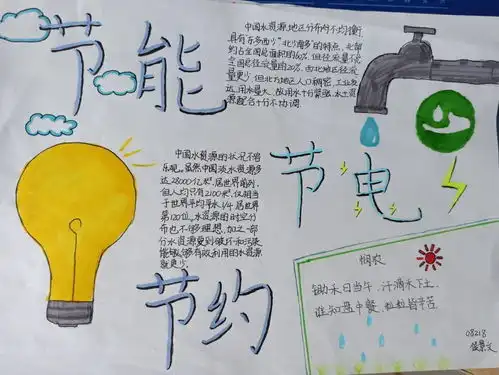 节能
中国水资源地区分布的不均衡
具有东多西少"北少南多"的特点,北部
约占全国总面积的60%,但径流量不足
全国总径流量的20%,西北地区径流
量更少,但北方地区人口稠密,工业发
达,用水量大,故用水十分紧张,水土资
源配合十分不协调
中国水资源的状况不容
乐观,虽然中国淡水资源多
达28000亿米³,居世界前列,
但人均只有2100米³,仅相当
于世界平均年水1/4,居世界
第120位,水资源的时空分
布也不够理想,加之一部
分水资源受到破坏和污染
能够有效利用的水资源
就更少
节电
节约
悯农
锄禾日当午,汗滴禾下土,
谁知盘中餐,粒粒皆辛苦
08218